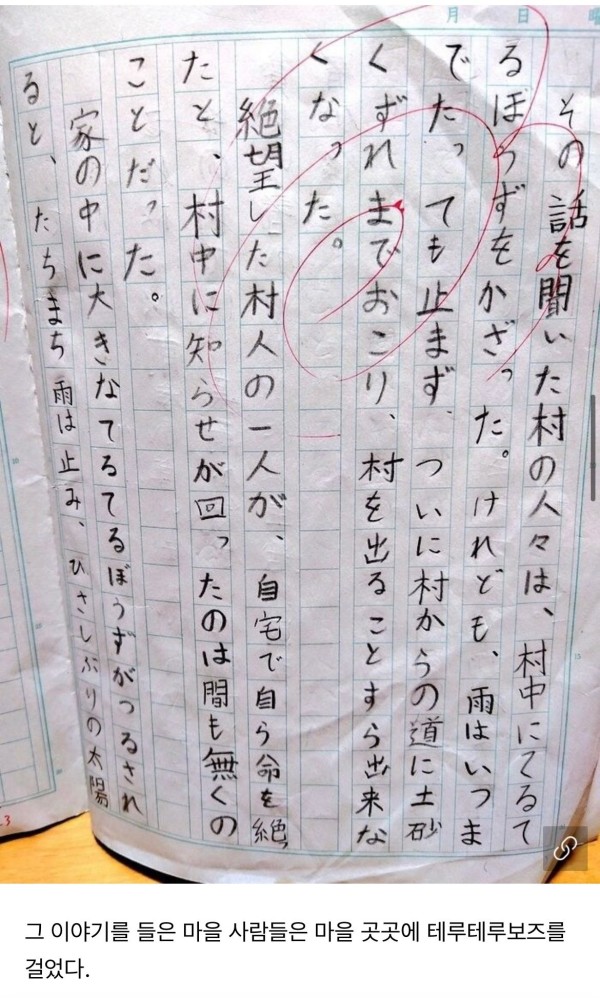 月 日 曜
その話を聞いた村の人々は、村中にてるて
るぼうずをかざった。けれども、雨はいつま
でたっても止まず、ついに村からの道に土砂
くずれまでおこり、村を出ることすら出来な
くなった。
絶望した村人の一人が、自宅で自ら命を絶っ
たと、村中に知らせが回ったのは間も無くの
ことだった。
家の中に大きなてるてるぼうずがつるされ
ると、たちまち雨は止み、ひさしぶりの太陽
그 이야기를 들은 마을 사람들은 마을 곳곳에 테루테루보즈를
걸었다.